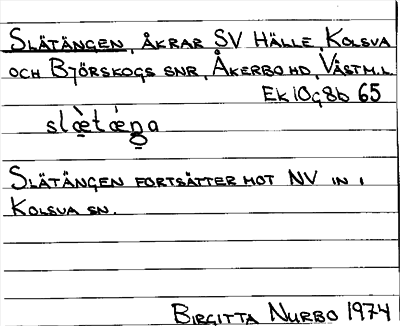 SLÄTÄNGEN, ÅKRAR SV HÄLLE, KOLSVA
OCH BJÖRSKOGS SNR, ÅKERBO HD, VÄSTM.L.
EK 10g8b 65
slæ̀tǽŋa
SLÄTÄNGEN FORTSÄTTER MOT NV IN I
KOLSVA SN.
BIRGITTA NURBO 1974